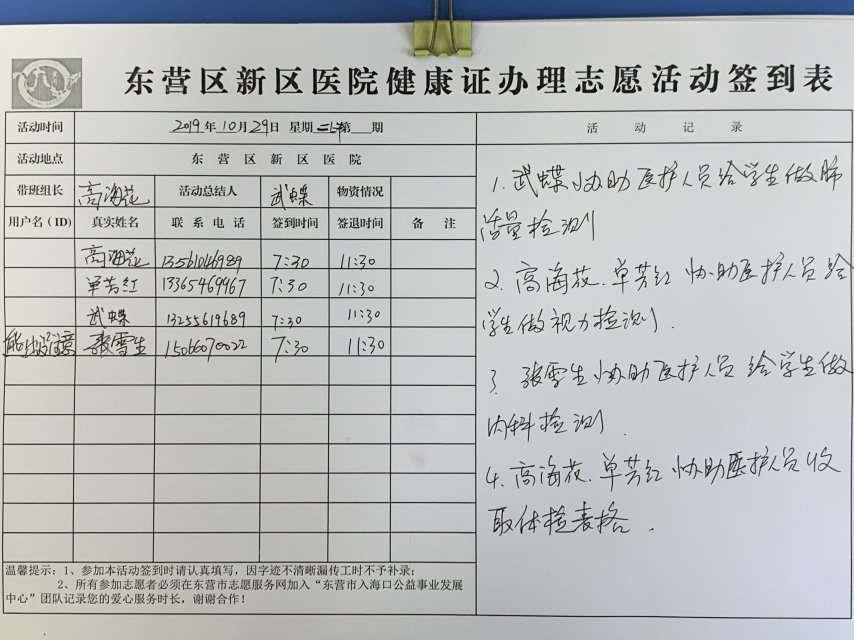 东营区新区医院健康证办理志愿活动签到表
活动时间 2019年10月29日 星期二 第 期
活动地点 东营区新区医院
带班组长 高海花 活动总结人 武蝶 物资情况
用户名(ID) 真实姓名 联系电话 签到时间 签退时间 备注
高海花 13561046989 7:30 11:30
单芳红 13365469967 7:30 11:30
武蝶 13255619689 7:30 11:30
张雪生 15066070022 7:30 11:30
温馨提示：1、参加本活动签到时请认真填写，因字迹不清晰漏传工时不予补录；
2、所有参加志愿者必须在东营市志愿服务网加入“东营市入海口公益事业发展
中心”团队记录您的爱心服务时长，谢谢合作！
活动记录
1. 武蝶协助医护人员给学生做肺
活量检测
2. 高海花.单芳红 协助医护人员给
学生做视力检测.
3. 张雪生协助医护人员给学生做
内科检测.
4. 高海花.单芳红 协助医护人员收
取体检表格.